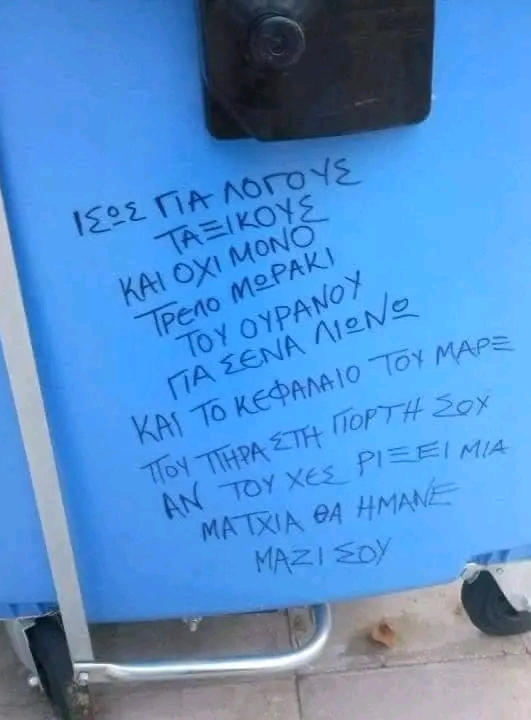 ΙΣΩΣ ΓΙΑ ΛΟΓΟΥΣ
ΤΑΞΙΚΟΥΣ
ΚΑΙ ΟΧΙ ΜΟΝΟ
ΤΡΕΛΟ ΜΩΡΑΚΙ
ΤΟΥ ΟΥΡΑΝΟΥ
ΓΙΑ ΣΕΝΑ ΛΙΩΝΩ
ΚΑΙ ΤΟ ΚΕΦΑΛΑΙΟ ΤΟΥ ΜΑΡΞ
ΠΟΥ ΠΗΡΑ ΣΤΗ ΓΙΟΡΤΗ ΣΟΥ
ΑΝ ΤΟΥ ΧΕΣ ΡΙΞΕΙ ΜΙΑ
ΜΑΤΧΙΑ ΘΑ ΗΜΑΝΕ
ΜΑΖΙ ΣΟΥ